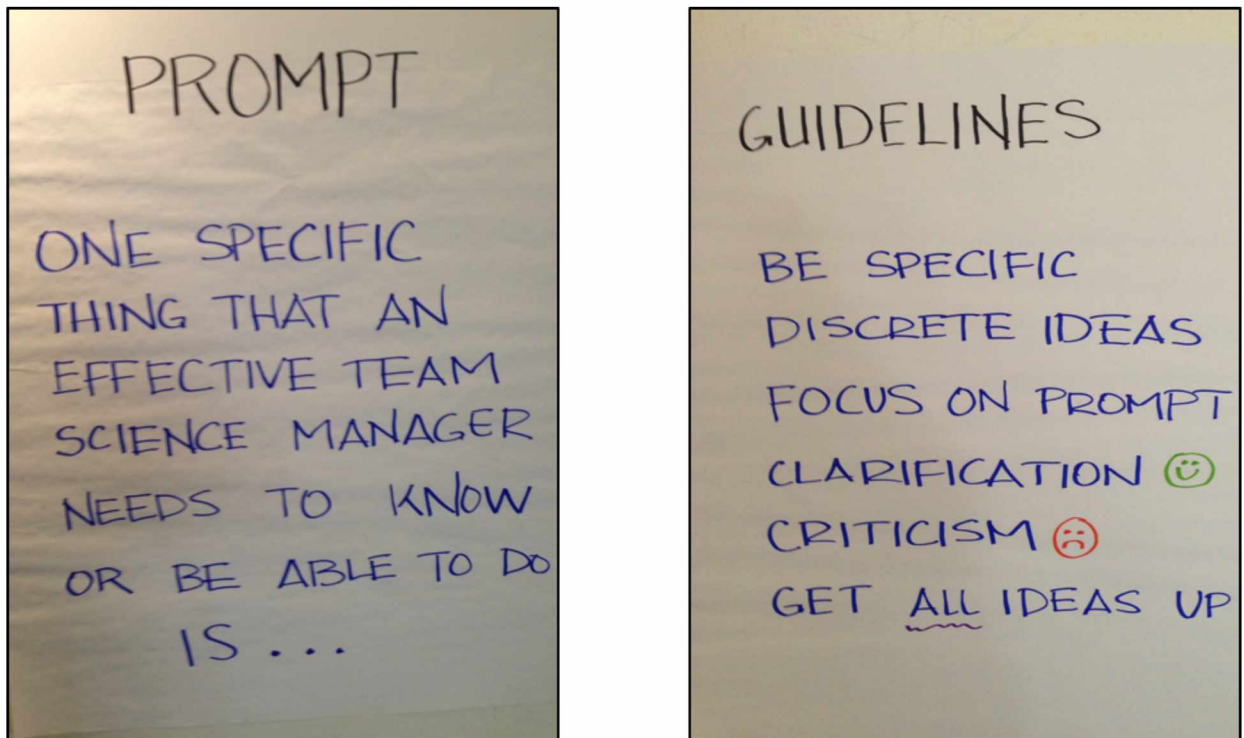 PROMPT
ONE SPECIFIC
THING THAT AN
EFFECTIVE TEAM
SCIENCE MANAGER
NEEDS TO KNOW
OR BE ABLE TO DO
IS ...
GUIDELINES
BE SPECIFIC
DISCRETE IDEAS
FOCUS ON PROMPT
CLARIFICATION
CRITICISM
GET ALL IDEAS UP